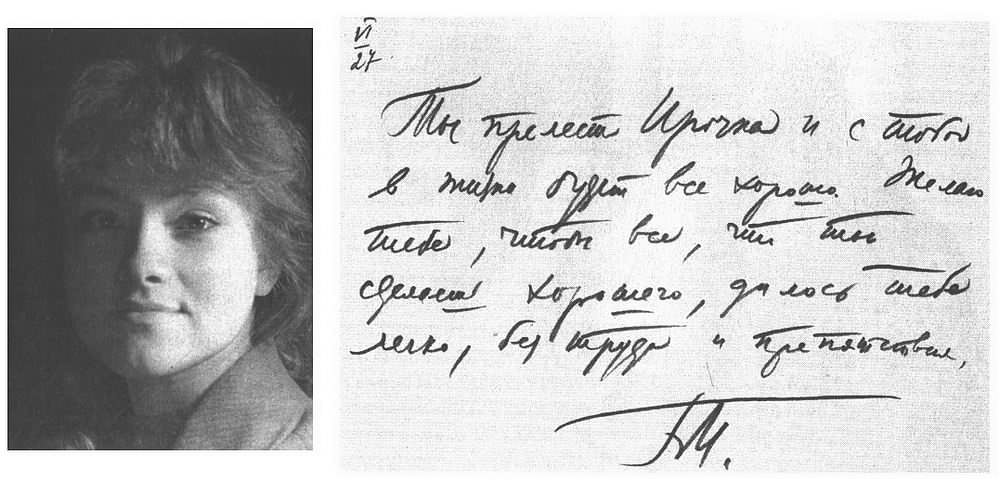 VI
27
Ты прелест Ирочка и с тобой
в жизни будет все хорошо. Желаю
тебе, чтобы все, что ты
сделаешь хорошего, далось тебе
легко, без труда и препятствия,